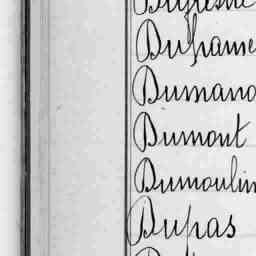 Dufresne
Duhame
Dumano
Dumont
Dumoulin
Dupas